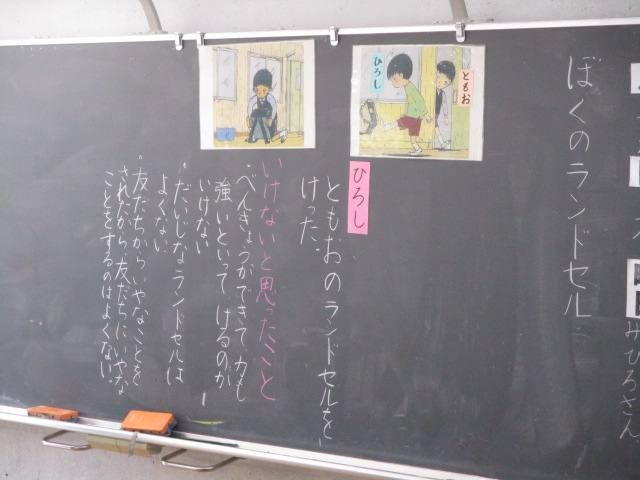 みひろさん
ぼくのランドセル
ともお
ひろし
ひろし
ともおのランドセルを
けった。
いけないと思ったこと
・べんきょうができて力も
強いといって けるのが
いけない
・だいじなランドセルは
よくない
・友だちからいやなことを
されたから友だちにいやな
ことをするのはよくない。